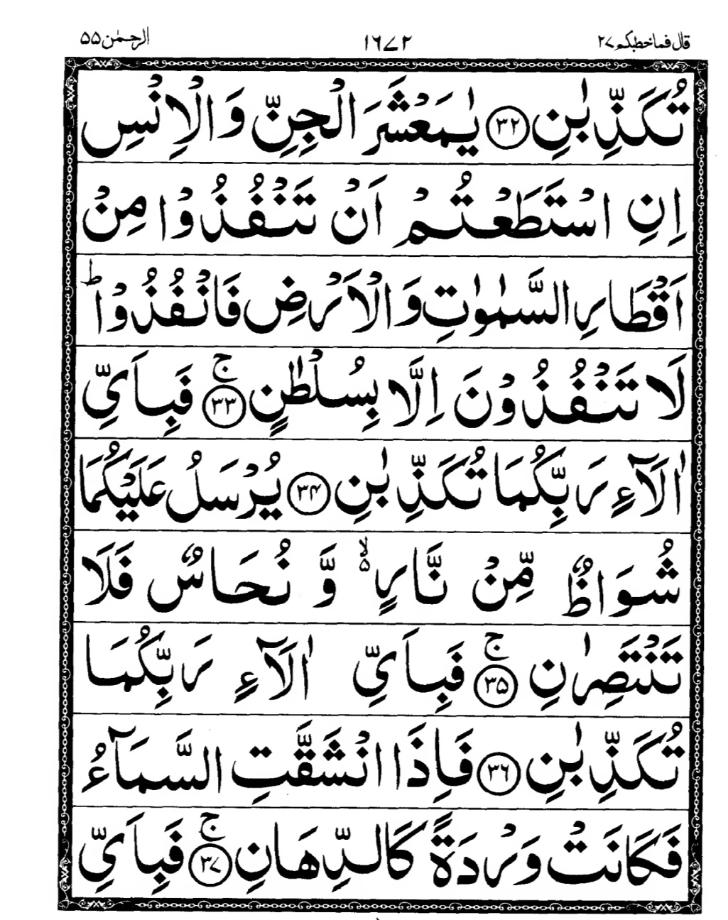 قال فماخطبكم ٢٧ ١٦٧٢ الرحمٰن ٥٥
تُكَذِّبٰنِ ﴿۳۲﴾ يٰمَعْشَرَ الْجِنِّ وَالْاِنْسِ
اِنِ اسْتَطَعْتُمْ اَنْ تَنْفُذُوْا مِنْ
اَقْطَارِ السَّمٰوٰتِ وَالْاَرْضِ فَانْفُذُوْا ؕ
لَا تَنْفُذُوْنَ اِلَّا بِسُلْطٰنٍ ۚ﴿۳۳﴾ فَبِاَيِّ
اٰلَآءِ رَبِّكُمَا تُكَذِّبٰنِ ﴿۳۴﴾ يُرْسَلُ عَلَيْكُمَا
شُوَاظٌ مِّنْ نَّارٍ ۙ۬ وَّ نُحَاسٌ فَلَا
تَنْتَصِرٰنِ ۚ﴿۳۵﴾ فَبِاَيِّ اٰلَآءِ رَبِّكُمَا
تُكَذِّبٰنِ ﴿۳۶﴾ فَاِذَا انْشَقَّتِ السَّمَآءُ
فَكَانَتْ وَرْدَةً كَالدِّهَانِ ۚ﴿۳۷﴾ فَبِاَيِّ